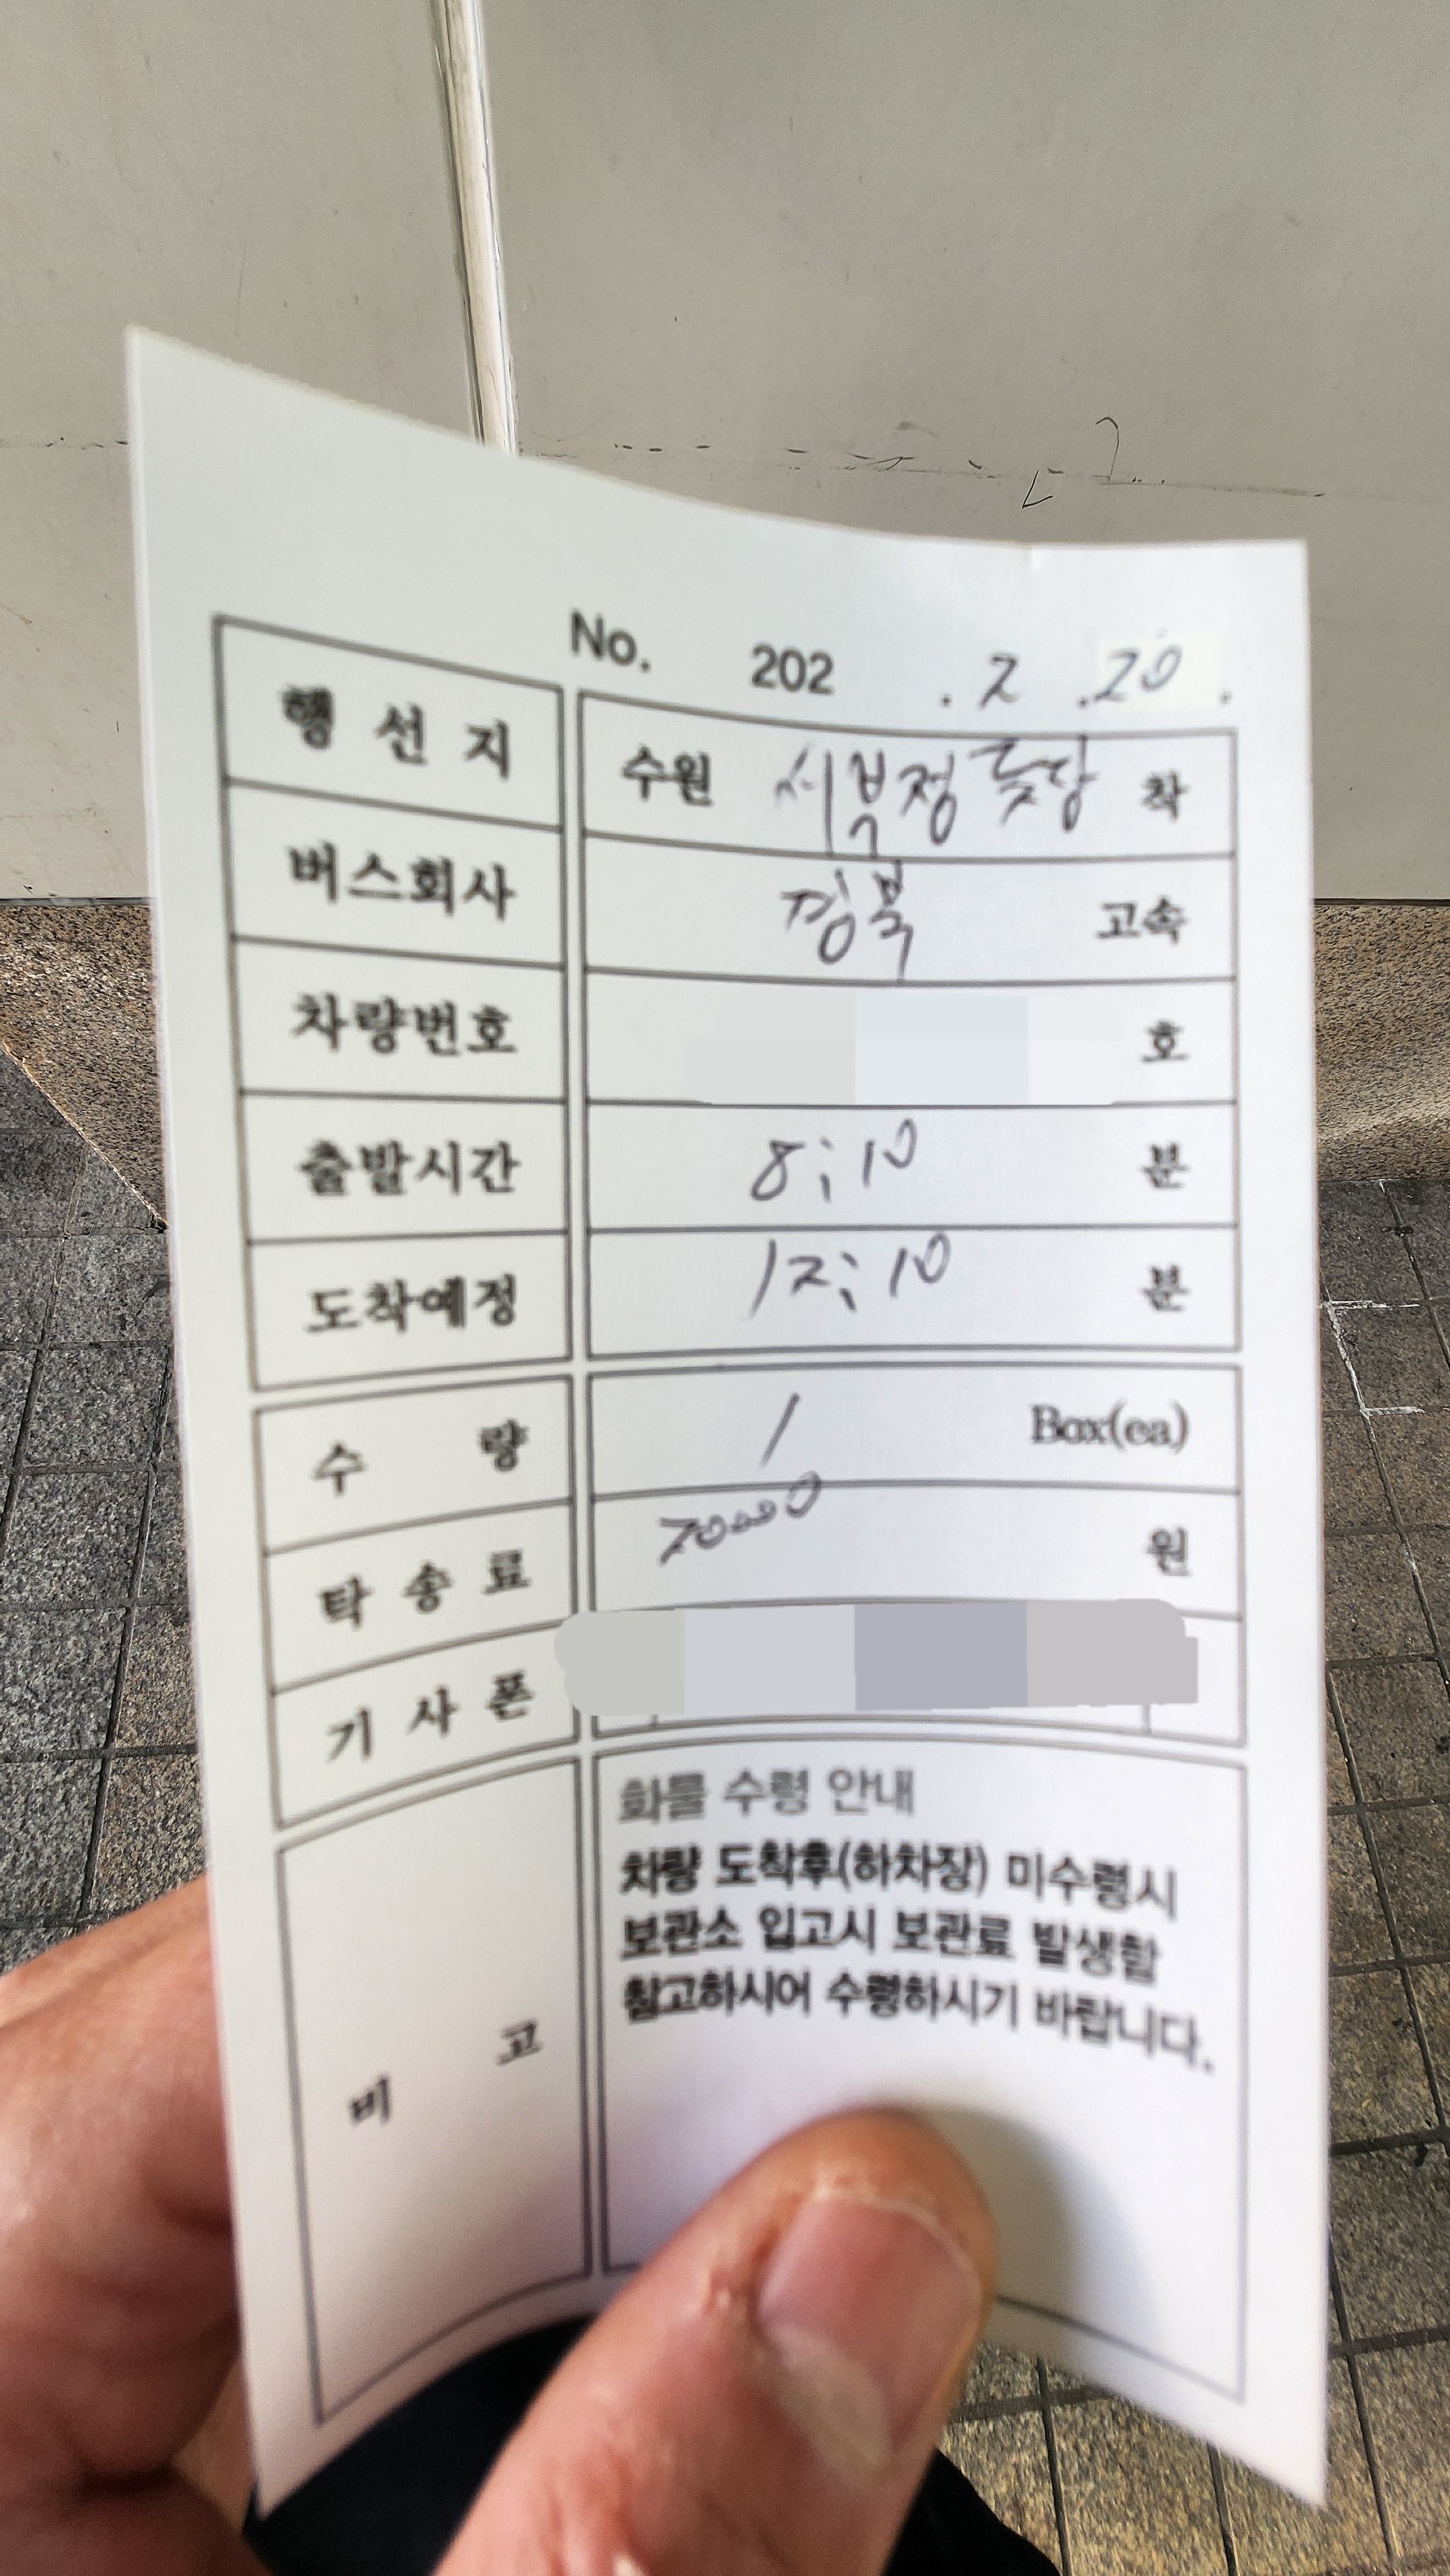 No. 202 . 2 . 20 .
행선지 수원 서부정류장 착
버스회사 경북 고속
차량번호 호
출발시간 8:10 분
도착예정 12:10 분
수량 1 Box(ea)
탁송료 원
기사폰
비고
화물 수령 안내
차량 도착후(하차장) 미수령시
보관소 입고시 보관료 발생함
참고하시어 수령하시기 바랍니다.